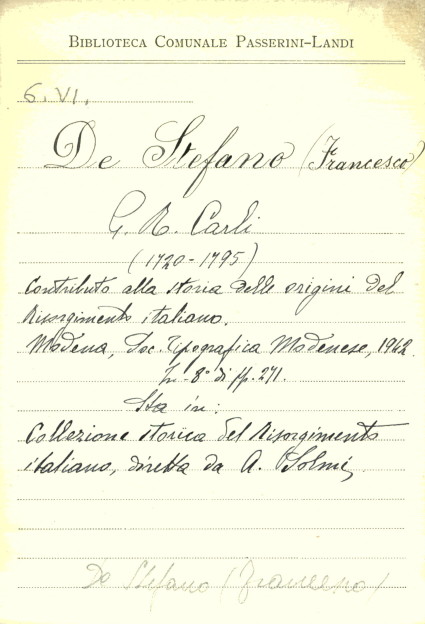 BIBLIOTECA COMUNALE PASSERINI-LANDI
6. VI.
De Stefano (Francesco)
G. R. Carli
(1720-1795)
Contributo alla storia delle origini del
Risorgimento italiano.
Modena, Soc. Tipografica Modenese, 1942.
In-8° di pp. 271.
Sta in:
Collezione storica del Risorgimento
italiano, diretta da A. Solmi,
De Stefano (Francesco)